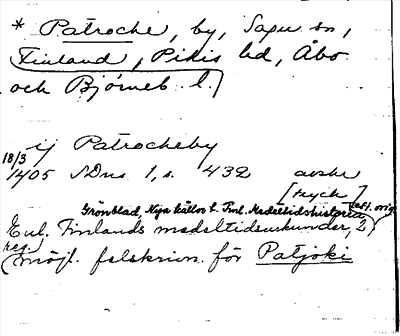 * Patroche, by, Sagu sn,
Finland, Pikis hd, Åbo
och Björneb. l.)
ij Patrocheby
18/3
1405 NDns 1, s. 432 avskr
[tryck] eft. orig.
Grönblad, Nya källor t. Finl. Medeltidshistoria,
Enl. Finlands medeltidsurkunder, 2)
reg.)
(möjl. felskrivn. för Patjoki